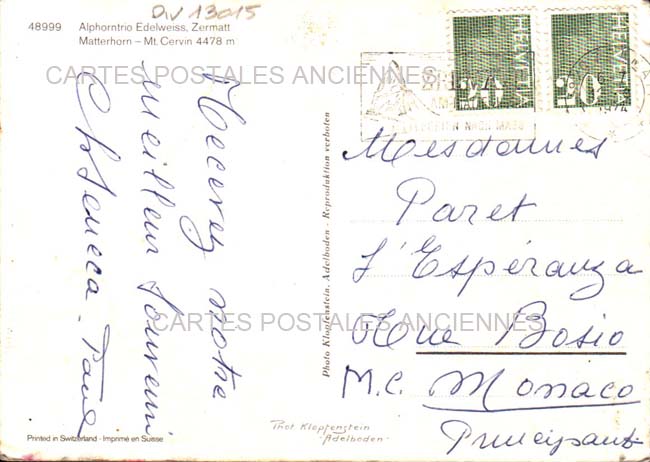 Div 13015
48999 Alphorntrio Edelweiss, Zermatt
Matterhorn – Mt. Cervin 4478 m
CARTES POSTALES ANCIENNES
Recevez notre
meilleur souvenir
Seneca - Paul
Photo Klopfenstein, Adelboden - Reproduktion verboten
HELVETIA
20
HELVETIA
20
Mesdames
Paret
L'Espéranza
Rue Bosio
M.C. Monaco
Principauté
CARTES POSTALES ANCIENNES
Phot Klopfenstein
- Adelboden -
Printed in Switzerland - Imprimé en Suisse